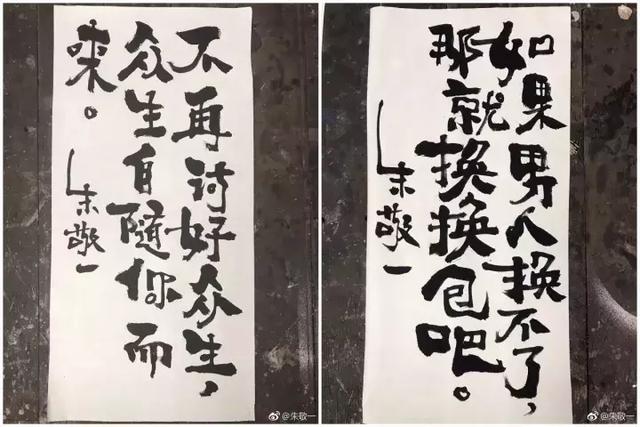 不再讨好众生，
众生自隨你而
来。
朱敬一
@朱敬一
如果男人换不了，
那就换换包吧。
朱敬一
@朱敬一